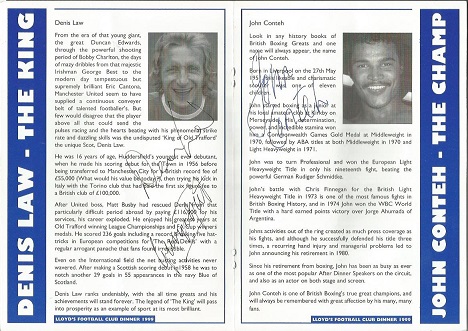 DENIS LAW - THE KING
Denis Law
From the era of that young giant,
the great Duncan Edwards,
through the powerful shooting
period of Bobby Charlton, the days
of crazy dribbles from that majestic
Irishman George Best to the
modern day tempestuous but
supremely brilliant Eric Cantona,
Manchester United seem to have
supplied a continuous conveyer
belt of talented footballer's. But
few would disagree that the player
above all that could send the
pulses racing and the hearts beating with his phenomenal strike
rate and dazzling skills was the undisputed 'King of Old Trafford'
the unique Scot, Denis Law.
He was 16 years of age, Huddersfield's youngest ever debutant,
when he made his scoring debut for the Town in 1956 before
being transferred to Manchester City for a British record fee of
£55,000 (What would his value be today?), then trying his luck in
Italy with the Torino club that had paid the first six figure fee to
a British club of £100,000.
After United boss, Matt Busby had rescued Denis from that
particularly difficult period abroad by paying £116,000 for his
services, his career exploded. He enjoyed his greatest years at
Old Trafford winning League Championships and F.A Cup winners
medals. He scored 236 goals including a record breaking five hat-
tricks in European competitions for 'The Red Devils' with a
regular arrogant panache that fans found irresistible.
Even on the International field the net busting activities never
wavered. After making a Scottish scoring debut in 1958 he was to
notch another 29 goals in 55 appearances in the navy Blue of
Scotland.
Denis Law ranks undeniably, with the all time greats and his
achievements will stand forever. The legend of 'The King' will pass
into prosperity as an example of sport at its most brilliant.
LLOYD'S FOOTBALL CLUB DINNER 1999
John Conteh
Look in any history books of
British Boxing Greats and one
name will always appear, the name
of John Conteh.
Born in Liverpool on the 27th May
1951, this likeable and charismatic
scouser was one of eleven
children.
John started boxing as a lad at
his local amateur club at Kirkby on
Merseyside. His determination,
power, and incredible stamina won
him a Commonwealth Games Gold Medal at Middleweight in
1970, followed by ABA titles at both Middleweight in 1970 and
Light Heavyweight in 1971.
John was to turn Professional and won the European Light
Heavyweight Title in only his nineteenth fight, beating the
powerful German Rudiger Schmidtke.
John's battle with Chris Finnegan for the British Light
Heavyweight Title in 1973 is one of the most famous fights in
British Boxing History, and in 1974 John won the WBC World
Title with a hard earned points victory over Jorge Ahumada of
Argentina.
John's activities out of the ring created as much press coverage as
his fights, and although he successfully defended his title three
times, a recurring hand injury and managerial problems led to
John announcing his retirement in 1980.
Since his retirement from boxing, John has been as busy as ever
as one of the most popular After Dinner Speakers on the circuit,
and also as an actor on both stage and screen.
John Conteh is one of British Boxing's true great champions, and
will always be remembered with great affection by his many, many
fans.
LLOYD'S FOOTBALL CLUB DINNER 1999
JOHN CONTEH - THE CHAMP